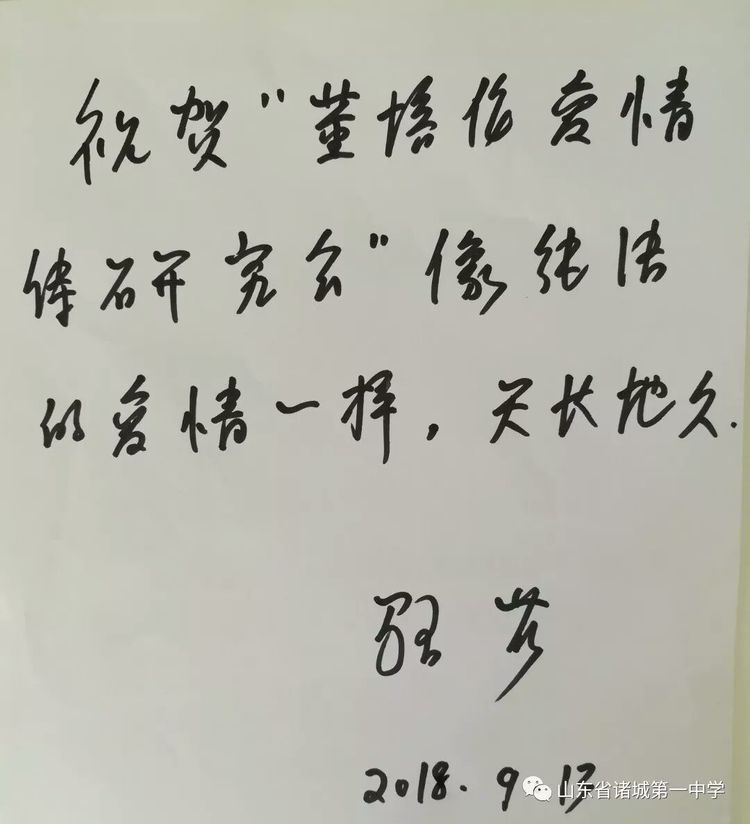 祝贺"董培伦爱情
诗研究会"像纯洁
的爱情一样，天长地久.
2018. 9
山东省诸城第一中学